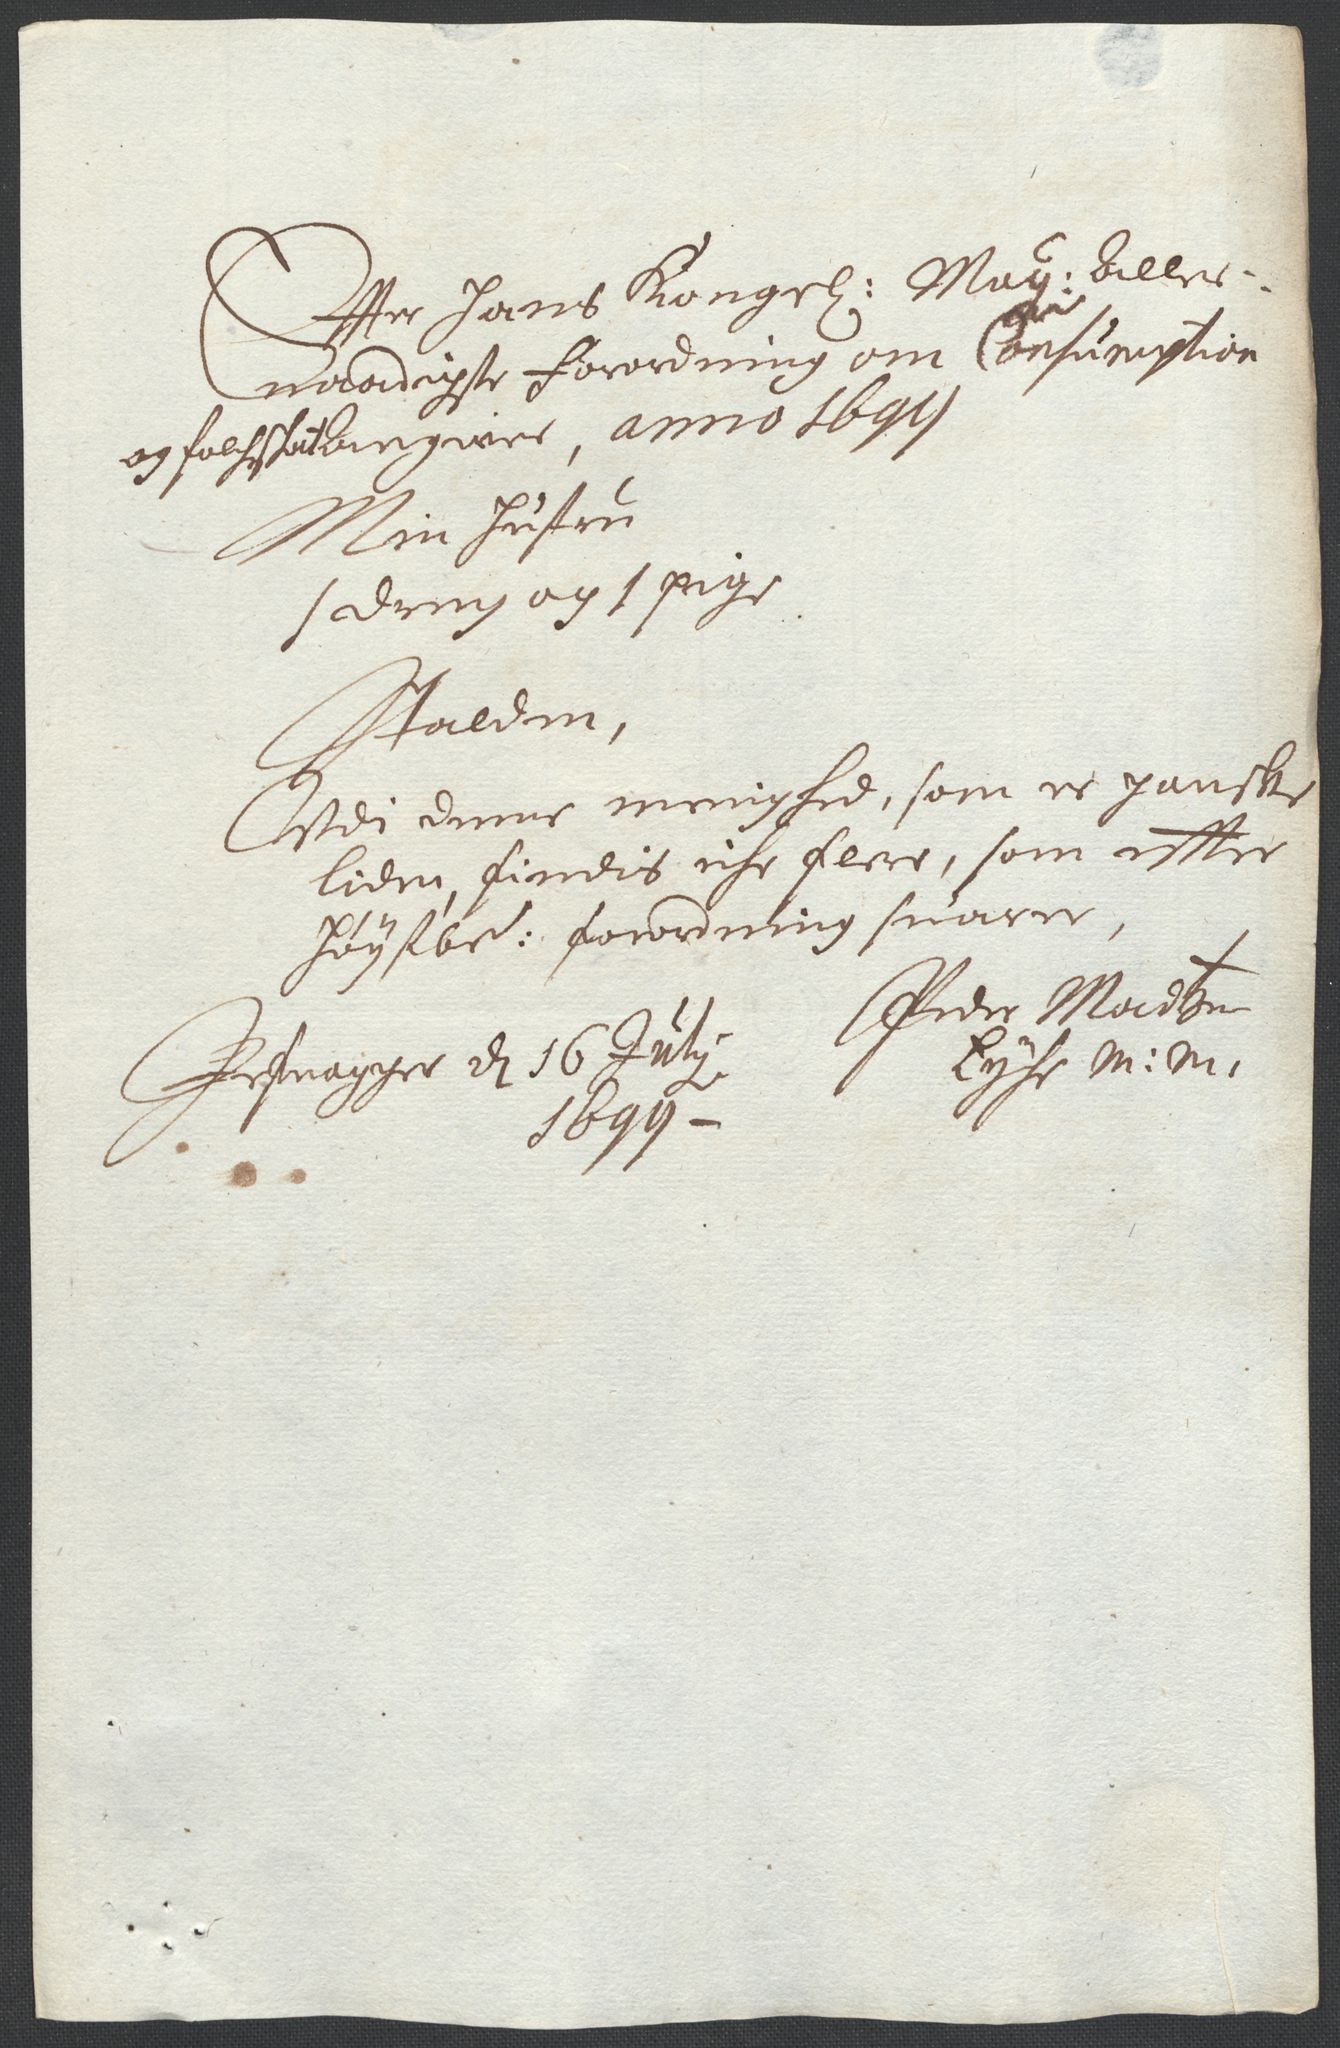 Effter Hans Kongel: May: Aller-
naadigste Forordning om Consumption
og folcheskat angives, anno 1699
Min Hustru
1 dreng og 1 pige
Stalden,
Udi denne menighed, som er ganske
liden, findis iche flere, som effter
høystbe: forordning suarer,
d 16 July
Peder Madsen
Lyche m: m.
1699 -